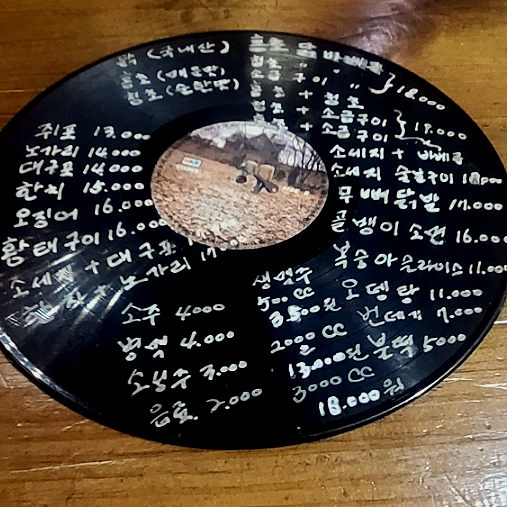 닭 (국내산)
홍초 (매운맛)
청초 (순한맛)
홍초 닭 바베큐
청초 〃
소금구이 〃
} 18,000
홍초 + 청초
홍초 + 소금구이
청초 + 소금구이
} 19.000
쥐포 13.000
노가리 14.000
대구포 14.000
한치 15.000
오징어 16.000
황태구이 16.000
소세지 + 대구포
노가리
소세지 + 바베큐
소세지 숯불구이 18,000
무뼈닭발 17.000
골뱅이 소면 16.000
복숭아 슬라이스 11.000
오뎅탕 11.000
번데기 7.000
5000
소주 4000
병맥 4.000
3.000
음료 2.000
생맥주
500 CC
3.500원
2000 CC
13.000원
3000 CC
18.000원